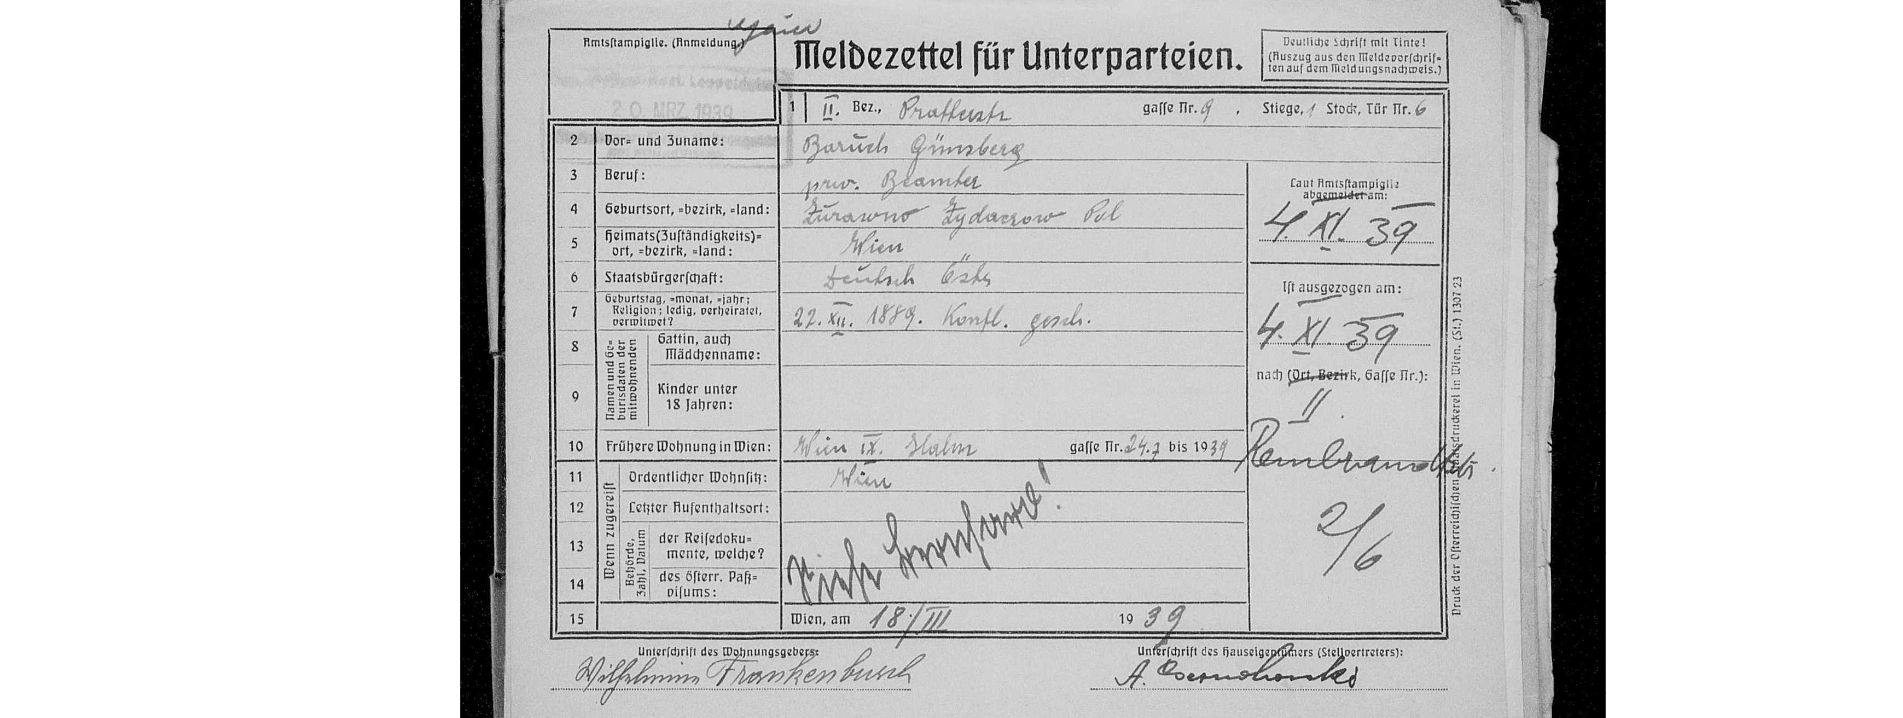 Amtsstampiglie. (Anmeldung.)
Meldezettel für Unterparteien.
Deutliche Schrift mit Tinte!
(Auszug aus den Meldevorschrif-
ten auf dem Meldungsnachweis.)
20. MRZ. 1939
1 II. Bez., Praterstr gasse Nr. 9, Stiege, 1 Stock, Tür Nr. 6
2 Vor- und Zuname: Baruch Günsberg
3 Beruf: priv. Beamter
4 Geburtsort, -bezirk, -land: Żurawno Żydaczow Pol
5 Heimats(Zuständigkeits)-
ort, -bezirk, -land: Wien
6 Staatsbürgerschaft: Deutsch Östr
7 Geburtstag, -monat, -jahr;
Religion; ledig, verheiratet,
verwitwet? 22. XII. 1889. Konfl. gesch.
Namen und Ge-
burtsdaten der
mitwohnenden
8 Gattin, auch
Mädchenname:
9 Kinder unter
18 Jahren:
10 Frühere Wohnung in Wien: Wien IX. Hahn gasse Nr. 24.7 bis 1939
Wenn zugereist
11 Ordentlicher Wohnsitz: Wien
12 Letzter Aufenthaltsort:
Behörde,
Zahl, Datum
13 der Reisedoku-
mente, welche?
14 des österr. Paß-
visums:
Siehe Bernhard!
15 Wien, am 18./III 1939
Laut Amtsstampiglie
abgemeldet am:
4. XI. 39
Ist ausgezogen am:
4. XI. 39
nach (Ort, Bezirk, Gasse Nr.):
II.
Rembrandtstr.
2/6
Druck der Österreichischen Staatsdruckerei in Wien. (St.) 1307 23
Unterschrift des Wohnungsgebers:
Wilhelmine Frankenbusch
Unterschrift des Hauseigentümers (Stellvertreters):
A.